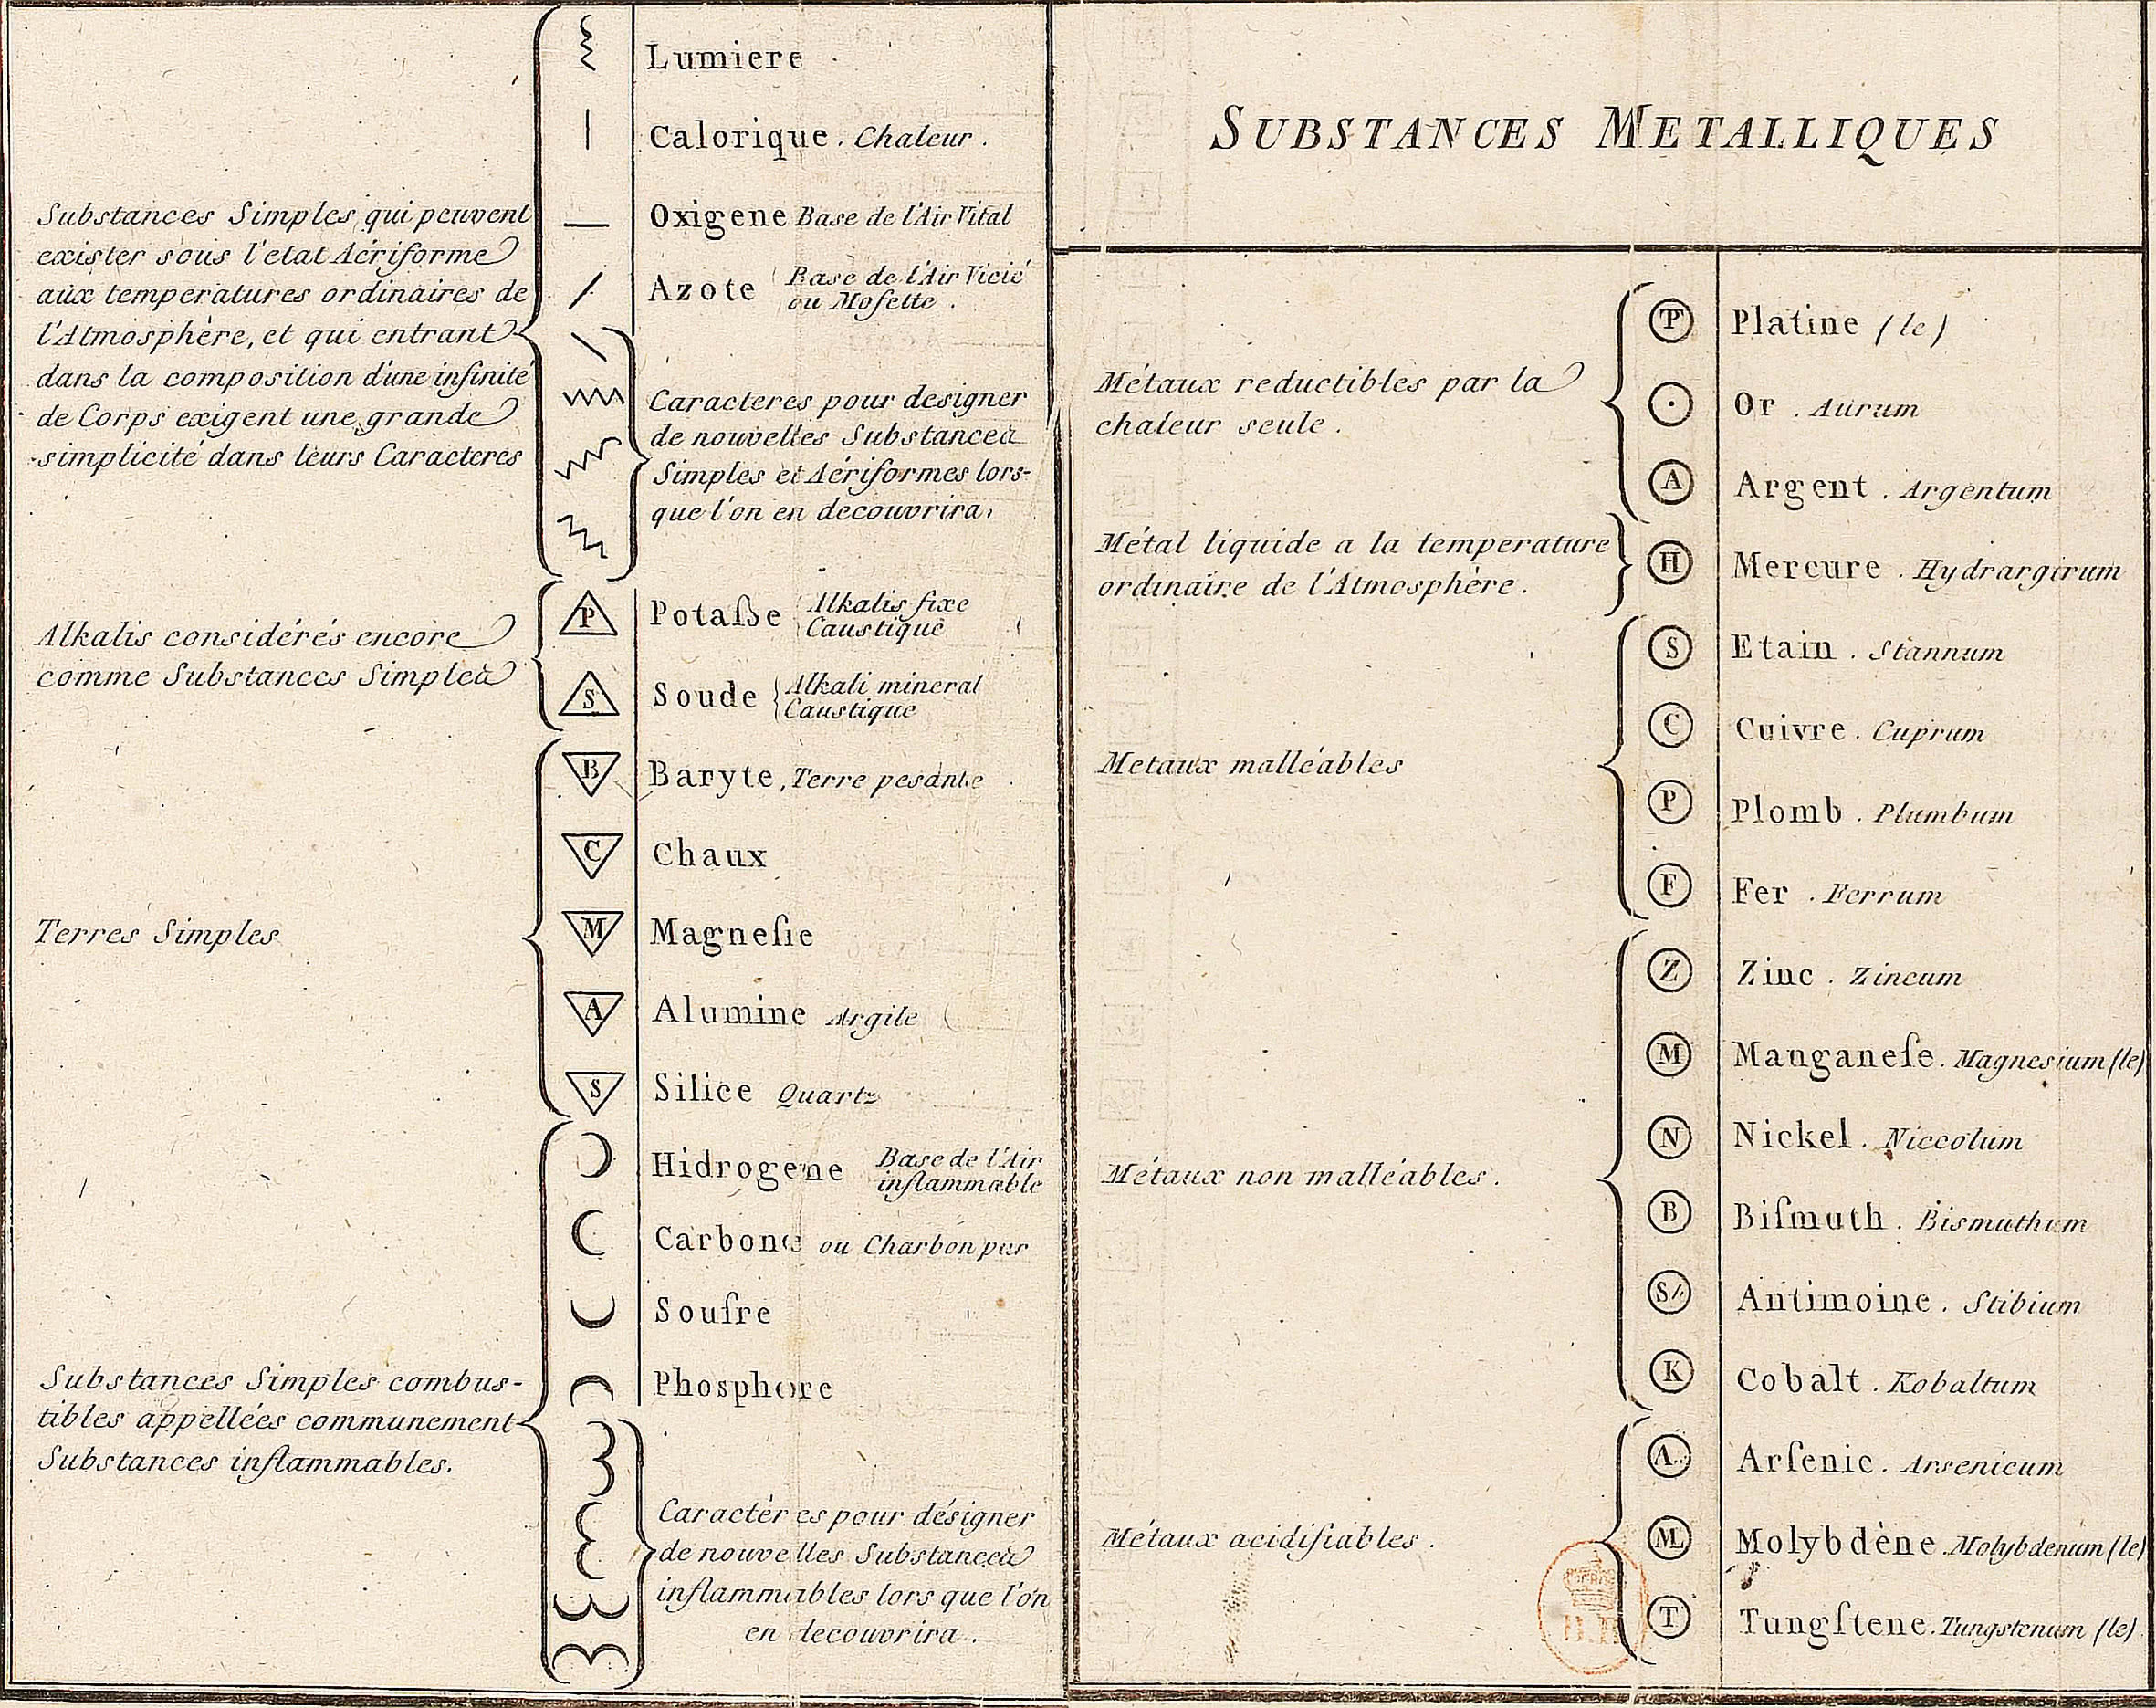 Substances Simples qui peuvent
exister sous l'etat Aériforme
aux temperatures ordinaires de
l'Atmosphère, et qui entrant
dans la composition d'une infinité
de Corps exigent une grande
simplicité dans leurs Caracteres
Lumiere
Calorique . Chaleur .
Oxigene Base de l'Air Vital
Azote Base de l'Air Vicié
ou Mofette .
Caracteres pour designer
de nouvelles Substances
Simples et Aériformes lors-
que l'on en decouvrira.
Alkalis considérés encore
comme Substances Simples
P Potaſse Alkalis fixe
Caustique
S Soude Alkali mineral
Caustique
Terres Simples
B Baryte, Terre pesante
C Chaux
M Magneſie
A Alumine Argile
S Silice Quartz
Substances Simples combus-
tibles appellées communement
Substances inflammables.
Hidrogene Base de l'Air
inflammable
Carbone ou Charbon pur
Soufre
Phosphore
Caractères pour désigner
de nouvelles Substances
inflammables lors que l'on
en decouvrira.
SUBSTANCES METALLIQUES
Métaux reductibles par la
chaleur seule .
Platine (le)
Or . Aurum
A Argent . Argentum
Métal liquide a la temperature
ordinaire de l'Atmosphère .
H Mercure . Hydrargirum
Metaux malléables
S Etain . Stannum
C Cuivre . Cuprum
P Plomb . Plumbum
F Fer . Ferrum
Métaux non malléables .
Z Zinc . Zincum
M Manganeſe . Magnesium (le)
N Nickel . Niccolum
B Biſmuth . Bismuthum
St Antimoine . Stibium
K Cobalt . Kobaltum
Métaux acidifiables .
A Arſenic . Arsenicum
ML Molybdène . Molybdenum (le)
T Tungſtene . Tungstenum (le)